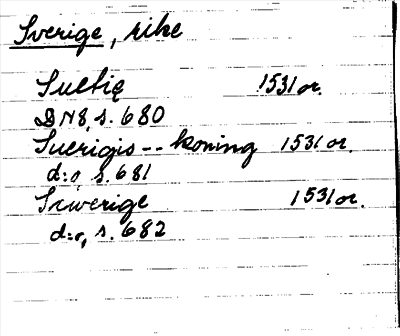 Sverige, rike
Suetię 1531 or.
DN8, s. 680
Suerigis -- koning 1531 or.
d:o, s. 681
Swerige 1531 or.
d:o, s. 682